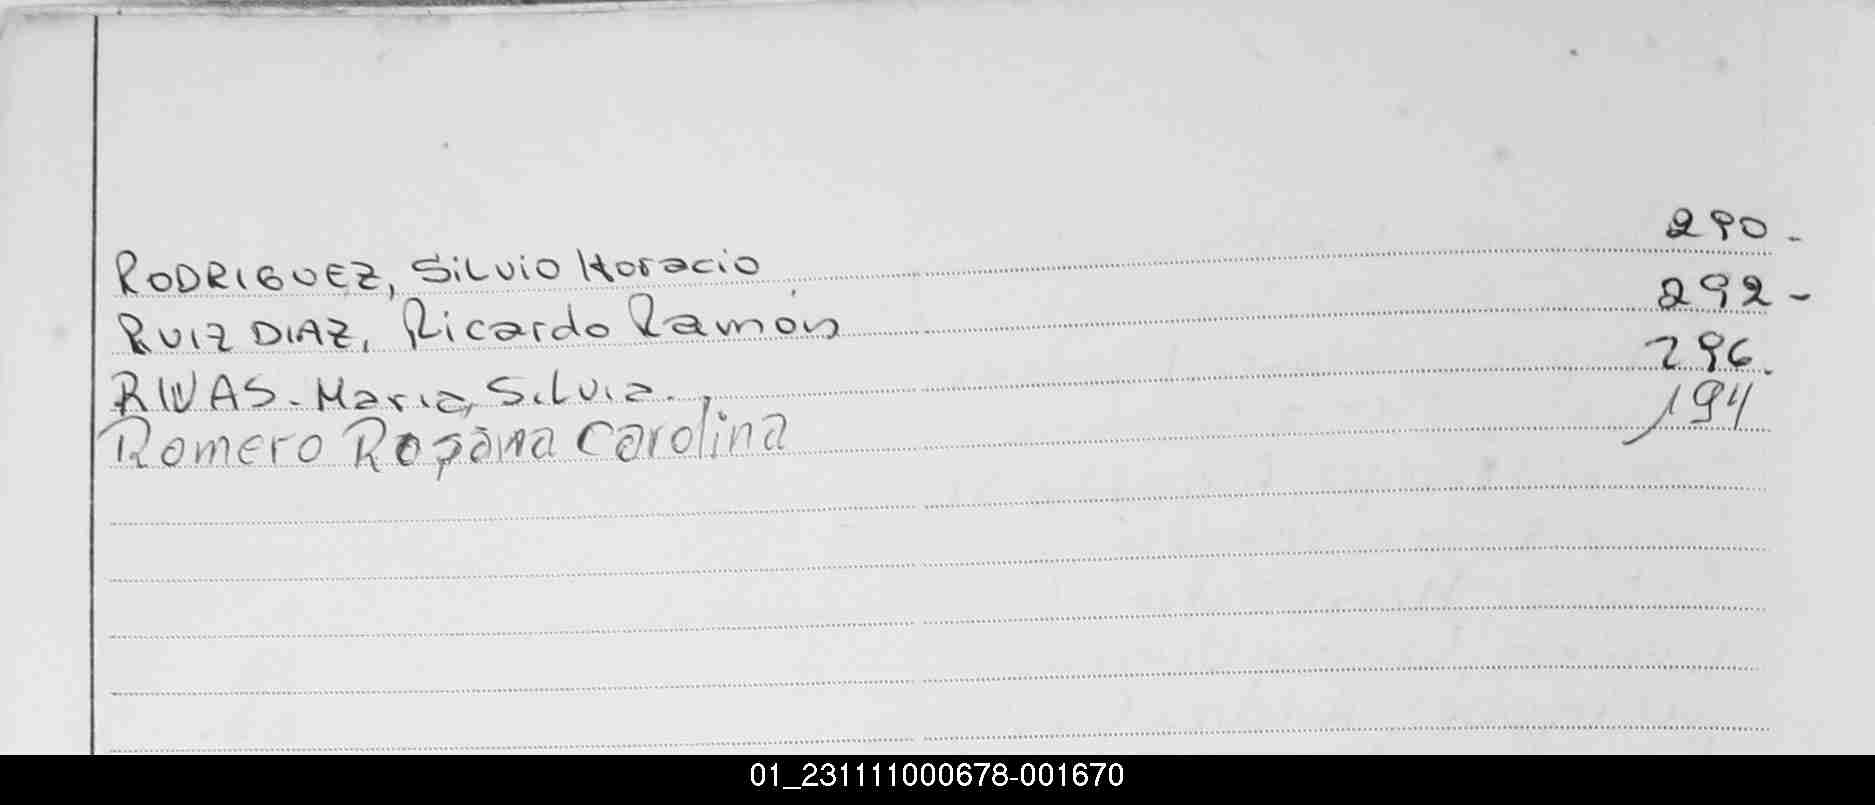 RODRIGUEZ, Silvio Horacio 290-
RUIZ DIAZ, Ricardo Ramón 292-
RIVAS. Maria, Silvia. 296.
Romero Rosana Carolina 194
01_231111000678-001670